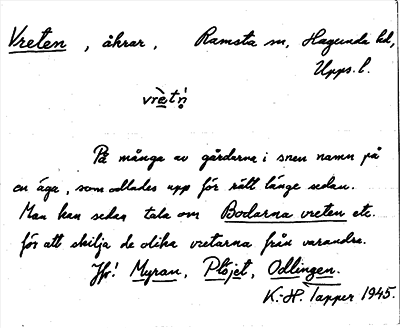 Vreten, åkrar, Ramsta sn, Hagunda hd,
Upps. l.
vre̱t'n̥
På många av gårdarna i snen namn på
en äga, som odlades upp för rätt länge sedan.
Man kan sedan tala om Bodarna vreten etc.
för att skilja de olika vretarna från varandra.
Jfr! Myran, Plöjet, Odlingen.
K.-H. Tapper 1945.